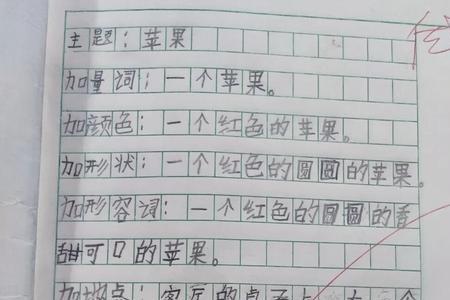 主题：苹果
加量词：一个苹果。
加颜色：一个红色的苹果。
加形状：一个红色的圆圆的苹果。
加形容词：一个红色的圆圆的香
甜可口的苹果。
加地点：客厅的桌子上